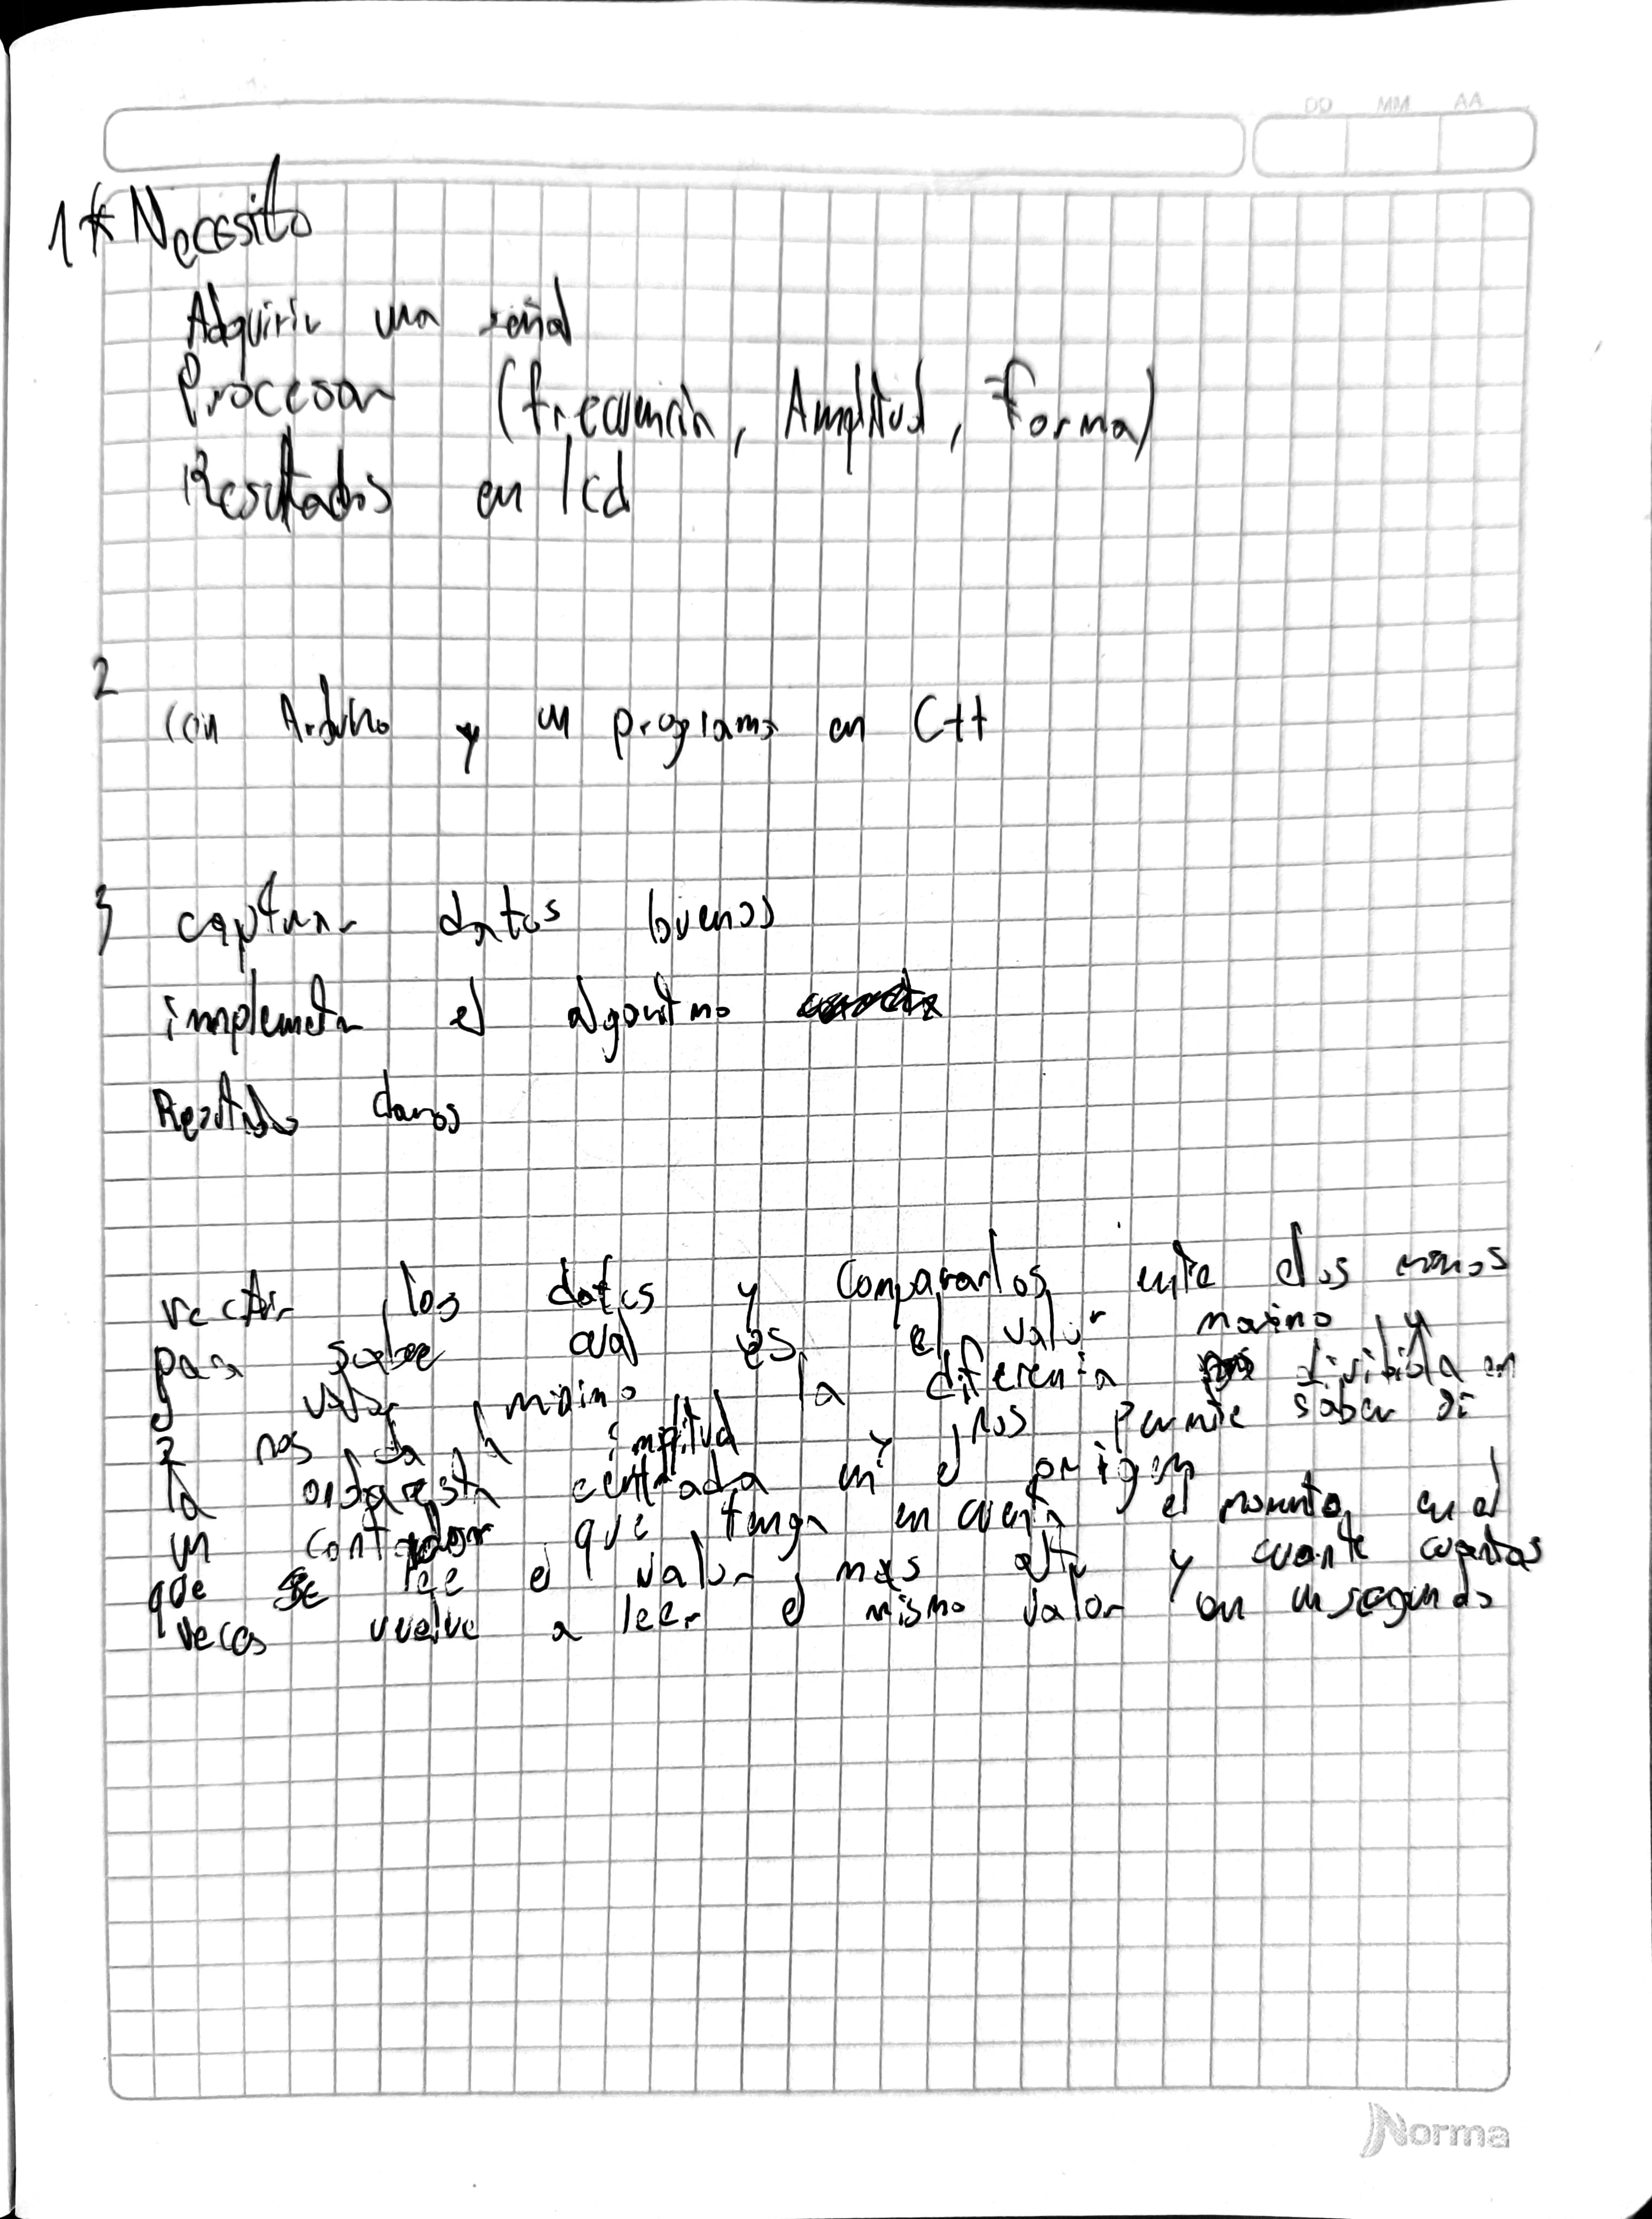 DD MM AA
1* Necesito
Adquirir una señal
Procesar (frecuencia, Amplitud, Forma)
Resultados en lcd
2
con Arduino y un programa en C++
3 capturar datos buenos
implementar el algoritmo
Resultados claros
los datos y compararlos entre ellos
para saber cual es el valor maximo y
el valor minimo la diferencia dividida en
2 nos da la amplitud y nos permite saber si
la onda esta centrada en el origen
un contador que tenga en cuenta el momento en el
que se lee el valor mas alto y cuantas
veces vuelve a leer el mismo valor en un segundo
Norma